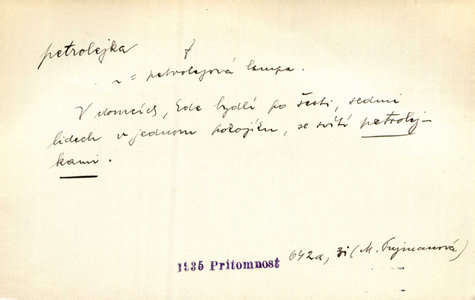 petrolejka f
~ = petrolejová lampa.
V domcích, kde bydlí po šesti, sedmi
lidech v jednom pokojíku, se svítí petrolej-
kami.
1935 Prítomnost 642a, 3i (M. Fujmanová)